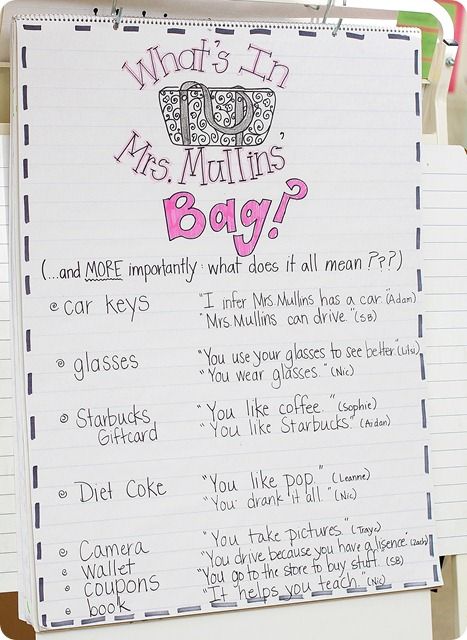 What's In
Mrs. Mullins'
Bag?
(...and MORE importantly: what does it all mean???)
car keys "I infer Mrs. Mullins has a car." (Adam)
"Mrs. Mullins can drive." (SB)
glasses "You use your glasses to see better."
"You wear glasses." (Nic)
Starbucks "You like coffee." (Sophie)
Giftcard "You like Starbucks" (Aidan)
Diet Coke "You like pop." (Leanne)
"You drank it all." (Nic)
Camera "You take pictures."
wallet "You drive because you have a lisence. (Zach)
coupons "You go to the store to buy stuff. (SB)
book "It helps you teach." (Nic)